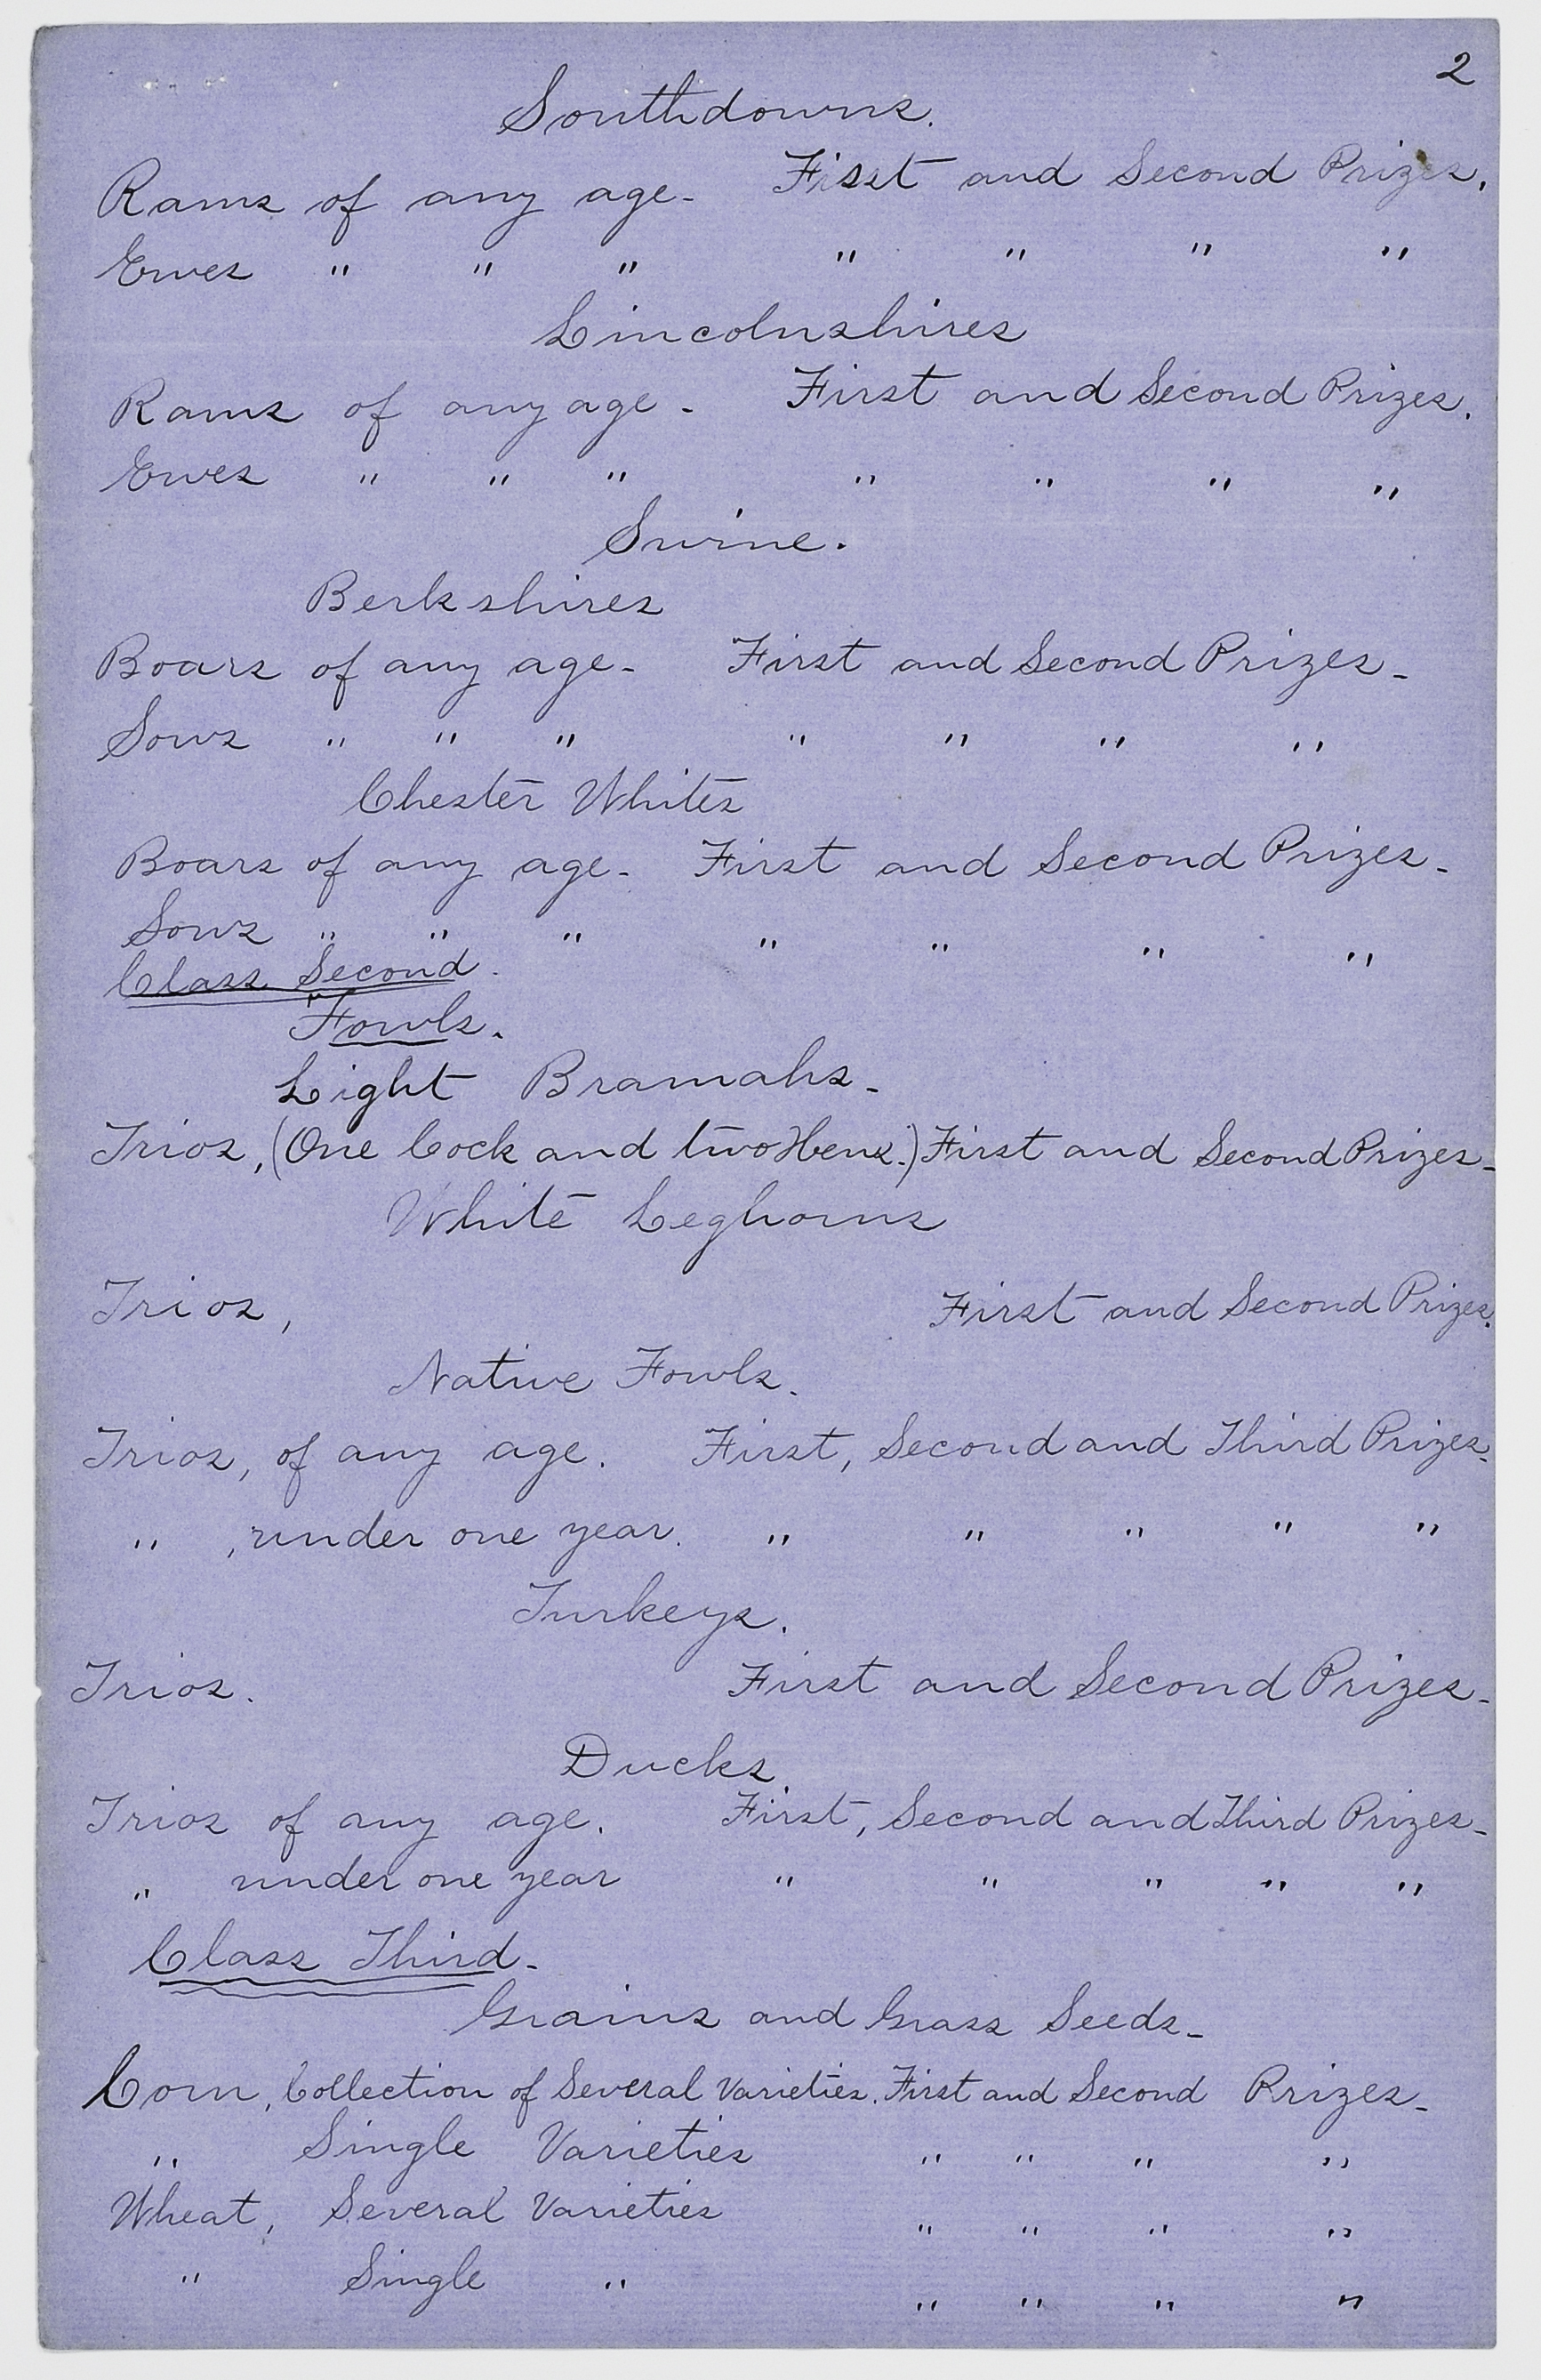 2
Southdowns.
Rams of any age. First and Second Prizes.
Ewes " " " " " " "
Lincolnshires
Rams of any age. First and Second Prizes.
Ewes " " " " " " "
Swine.
Berkshires
Boars of any age. First and Second Prizes.
Sows " " " " " " "
Chester Whites
Boars of any age. First and Second Prizes.
Sows " " " " " " "
Class Second.
Fowls.
Light Bramahs.
Trios, (One Cock and two Hens.) First and Second Prizes.
White Leghorns
Trios, First and Second Prizes.
Native Fowls.
Trios, of any age. First, Second and Third Prizes.
" , under one year. " " " " "
Turkeys.
Trios. First and Second Prizes.
Ducks.
Trios of any age. First, Second and Third Prizes.
" under one year " " " " "
Class Third.
Grains and Grass Seeds.
Corn, Collection of Several Varieties. First and Second Prizes.
" Single Varieties " " " "
Wheat, Several Varieties " " " "
" Single " " " " "